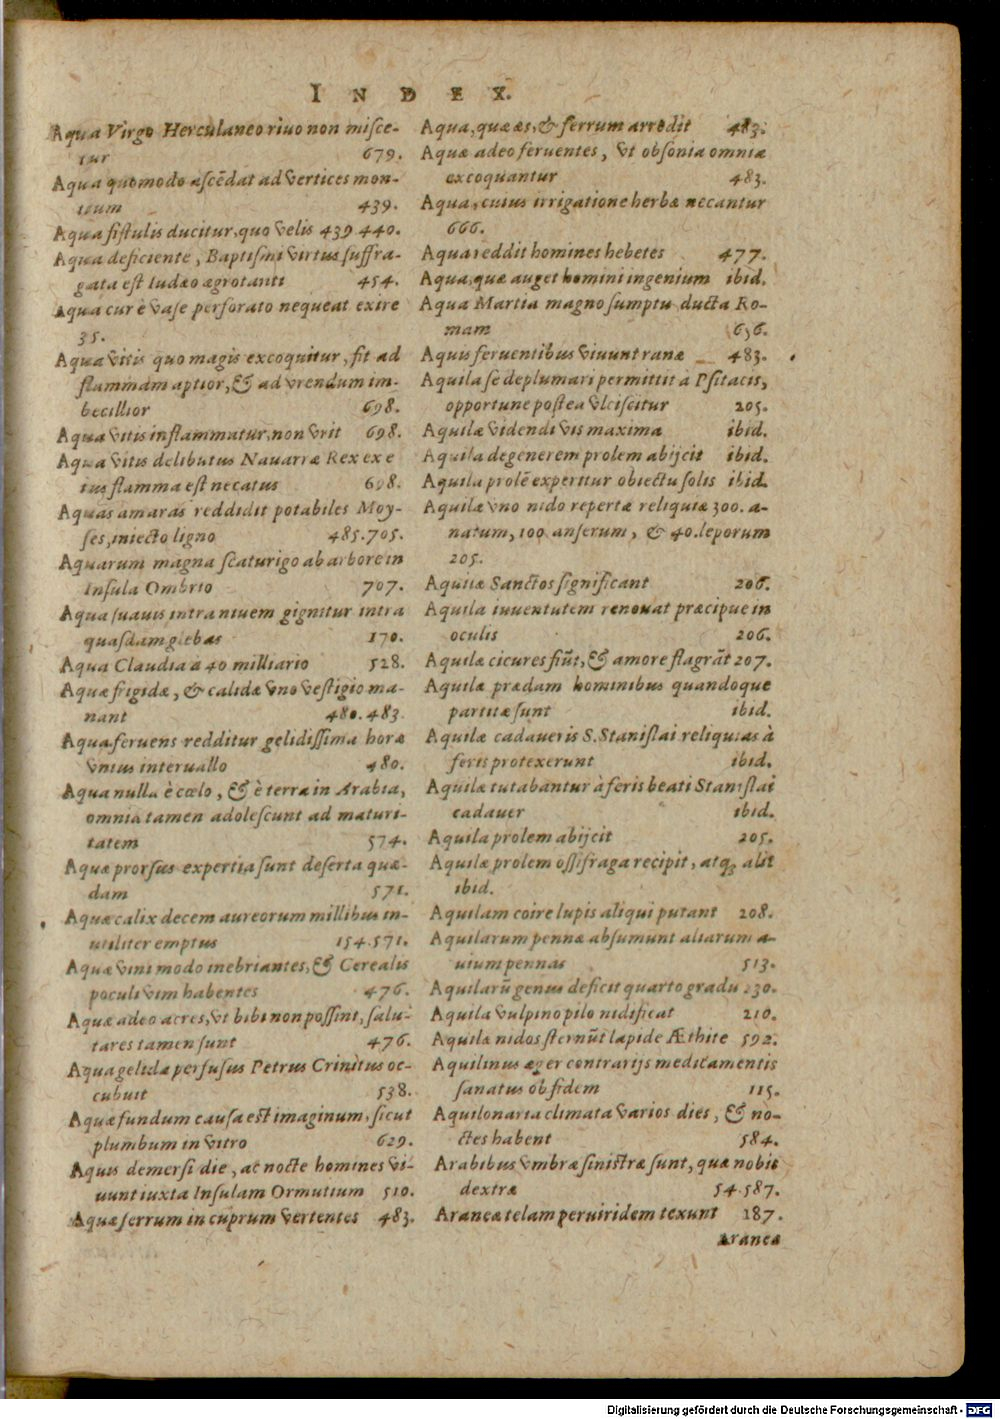 INDEX.
Aqua Virgo Herculaneo riuo non misce-
tur 679.
Aqua quomodo ascēdat ad vertices mon-
tium 439.
Aqua fistulis ducitur, quo velis 439 440.
Aqua deficiente, Baptismi virtus suffra-
gata est Iudæo ægrotanti 454.
Aqua cur è vase perforato nequeat exire
35.
Aqua vitis quo magis excoquitur, fit ad
flammam aptior, & ad vrendum im-
becillior 698.
Aqua vitis inflammatur, non vrit 698.
Aqua vitis delibutus Nauarræ Rex ex e
ius flamma est necatus 698.
Aquas amaras reddidit potabiles Moy-
ses, iniecto ligno 485.705.
Aquarum magna scaturigo ab arbore in
Insula Ombrio 707.
Aqua suauis intra niuem gignitur intra
quasdam glebas 170.
Aqua Claudia a 40 milliario 528.
Aquæ frigidæ, & calidæ vno vestigio ma-
nant 480.483.
Aqua feruens redditur gelidissima horæ
vnius interuallo 480.
Aqua nulla è cœlo, & è terra in Arabia,
omnia tamen adolescunt ad maturi-
tatem 574.
Aquæ prorsus expertia sunt deserta quæ-
dam 571.
Aquæ calix decem aureorum millibus in-
utiliter emptus 154.571.
Aquæ vini modo inebriantes, & Cerealis
poculi vim habentes 476.
Aquæ adeo acres, vt bibi non possint, salu-
tares tamen sunt 476.
Aqua gelida persusus Petrus Crinitus oc-
cubuit 538.
Aquæ fundum causa est imaginum, sicut
plumbum in vitro 629.
Aquis demersi die, ac nocte homines vi-
uunt iuxta Insulam Ormutium 510.
Aquæ ferrum in cuprum vertentes 483.
Aqua, quæ æs, & ferrum arrodit 483.
Aquæ adeo feruentes, vt obsonia omnia
excoquantur 483.
Aqua, cuius irrigatione herbæ necantur
666.
Aqua reddit homines hebetes 477.
Aqua, quæ auget homini ingenium ibid.
Aqua Martia magno sumptu ducta Ro-
mam 696.
Aquis feruentibus viuunt ranæ 483.
Aquila se deplumari permittit à Psitacis,
opportune postea vlciscitur 205.
Aquilæ videndi vis maxima ibid.
Aquila degenerem prolem abijcit ibid.
Aquila prolē experitur obiectu solis ibid.
Aquilæ vno nido repertæ reliquiæ 300. a-
natum, 100 anserum, & 40. leporum
205.
Aquilæ Sanctos significant 206.
Aquila iuuentutem renouat præcipue in
oculis 206.
Aquilæ cicures fiūt, & amore flagrāt 207.
Aquilæ prædam hominibus quandoque
partitæ sunt ibid.
Aquilæ cadaueris S. Stanislai reliquias à
feris protexerunt ibid.
Aquilæ tutabantur à feris beati Stanislai
cadauer ibid.
Aquila prolem abijcit 205.
Aquilæ prolem ossifraga recipit, atq; alit
ibid.
Aquilam coire lupis aliqui putant 208.
Aquilarum pennæ absumunt aliarum a-
uium pennas 513.
Aquilarū genus deficit quarto gradu 230.
Aquila vulpino pilo nidificat 210.
Aquilæ nidos sternūt lapide Æthite 592.
Aquilinus æger contrarijs medicamentis
sanatus obsidem 115.
Aquilonaria climata varios dies, & no-
ctes habent 584.
Arabibus vmbræ sinistræ sunt, quæ nobis
dextræ 54.587.
Araneæ telam per viridem texunt 187.
Aranea
Digitalisierung gefördert durch die Deutsche Forschungsgemeinschaft - DFG